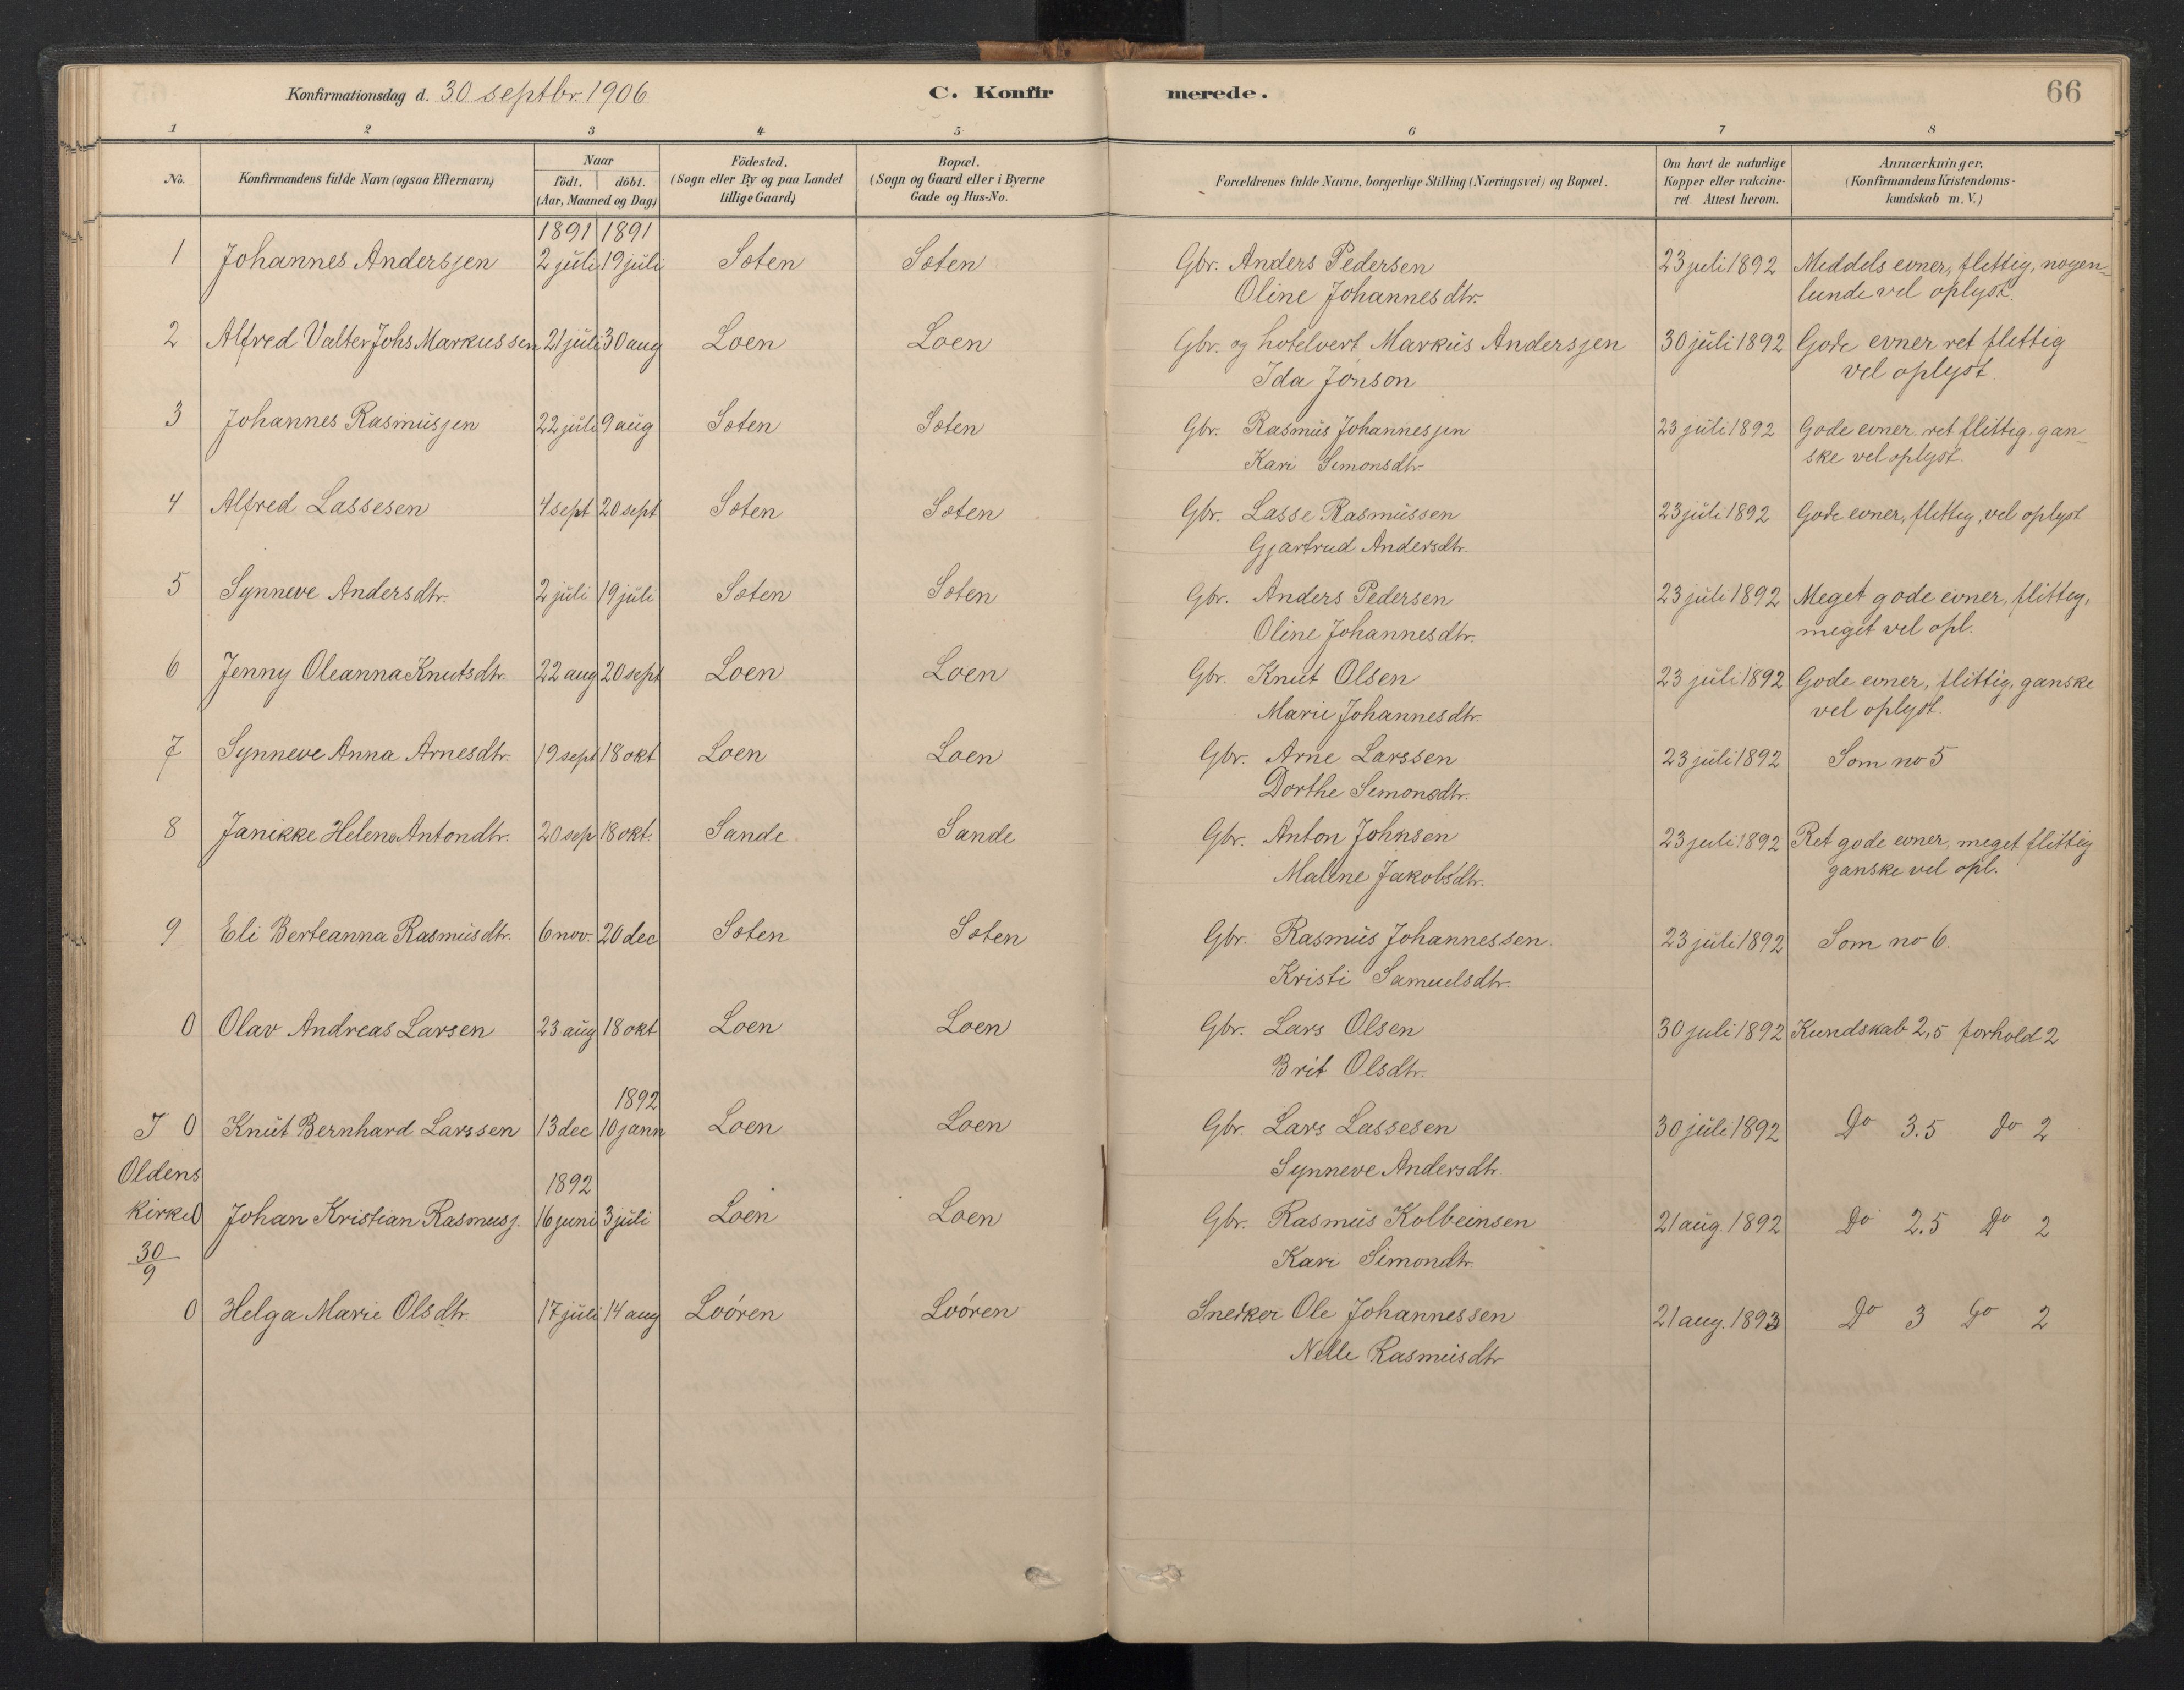 Konfirmationsdag d. 30 septbr. 1906 C. Konfirmerede. 66
1 2 3 4 5 6 7 8
No. Konfirmandens fulde Navn (ogsaa Efternavn) Naar födt. döbt. (Aar, Maaned og Dag) Födested. (Sogn eller By og paa Landet tillige Gaard) Bopæl. (Sogn og Gaard eller i Byerne Gade og Hus-No. Forældrenes fulde Navne, borgerlige Stilling (Næringsvei) og Bopæl. Om havt de naturlige Kopper eller vakcineret Attest herom. Anmærkninger. (Konfirmandens Kristendomskundskab m. V.)
1891 1891
1 Johannes Andersjen 2 juli 19 juli Sæten Sæten Gbr. Anders Pedersen 23 juli 1892 Meddels evner, flittig, nogen-
Oline Johannesdtr. lunde vel oplyst.
2 Alfred Valter Johs Markussen 21 juli 30 aug Loen Loen Gbr. og hotelvert Markus Andersjen 30 juli 1892 Gode evner ret flittig
Ida Jonson vel oplyst
3 Johannes Rasmusjen 22 juli 9 aug Sæten Sæten Gbr. Rasmus Johannesjen 23 juli 1892 Gode evner ret flittig, gan-
Kari Simonsdtr. ske vel oplyst.
4 Alfred Lassesen 4 sept 20 sept Sæten Sæten Gbr. Lasse Rasmussen 23 juli 1892 Gode evner, flittig, vel oplyst
Gjartrud Andersdtr.
5 Synneve Andersdtr. 2 juli 19 juli Sæten Sæten Gbr. Anders Pedersen 23 juli 1892 Meget gode evner, flittig,
Oline Johannesdtr. meget vel opl.
6 Jenny Oleanna Knutsdtr. 22 aug 20 sept Loen Loen Gbr. Knut Olsen 23 juli 1892 Gode evner, flittig, ganske
Marie Johannesdtr. vel oplyst.
7 Synneve Anna Arnesdtr. 19 sept 18 okt Loen Loen Gbr. Arne Larssen 23 juli 1892 Som no 5
Dorthe Simonsdtr.
8 Janikke Helene Antondtr. 20 sep 18 okt. Sande Sande Gbr. Anton Johnsen 23 juli 1892 Ret gode evner, meget flittig
Malene Jakobsdtr. ganske vel opl.
9 Eli Berteanna Rasmusdtr. 6 nov. 20 dec Sæten Sæten Gbr. Rasmus Johannessen 23 juli 1892 Som no 6.
Kristi Samuelsdtr.
0 Olav Andreas Larsen 23 aug 18 okt Loen Loen Gbr. Lars Olsen 30 juli 1892 Kundskab 2,5 forhold 2
Brit Olsdtr.
1892
I 0 Knut Bernhard Larssen 13 dec 10 jann Loen Loen Gbr. Lars Lassesen 30 juli 1892 Do 3.5 do 2
Oldens Synneve Andersdtr.
1892
kirke 0 Johan Kristian Rasmusj. 16 juni 3 juli Loen Loen Gbr. Rasmus Kolbeinsen 21 aug. 1892 Do 2.5 Do 2
30/9 Kari Simondtr.
0 Helga Marie Olsdtr. 17 juli 14 aug Loóren Loóren Snekker Ole Johannessen 21 aug. 1893 Do 3 Do 2
Nelle Rasmusdtr